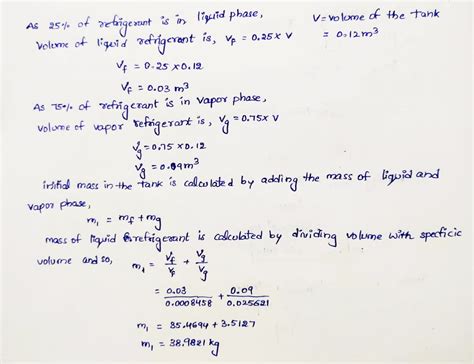 As 25% of refrigerant is in liquid phase,
volume of liquid refrigerant is, Vf = 0.25 x V
V = volume of the tank
= 0.12 m³
Vf = 0.25 x 0.12
Vf = 0.03 m³
As 75% of refrigerant is in vapor phase,
volume of vapor refrigerant is, Vg = 0.75 x V
Vg = 0.75 x 0.12
Vg = 0.09 m³
initial mass in the tank is calculated by adding the mass of liquid and
vapor phase,
m₁ = mf + mg
mass of liquid refrigerant is calculated by dividing volume with specficic
volume and so, m₁ = Vf/vf + Vg/vg
= 0.03/0.0008458 + 0.09/0.025621
m₁ = 35.4694 + 3.5127
m₁ = 38.9821 kg